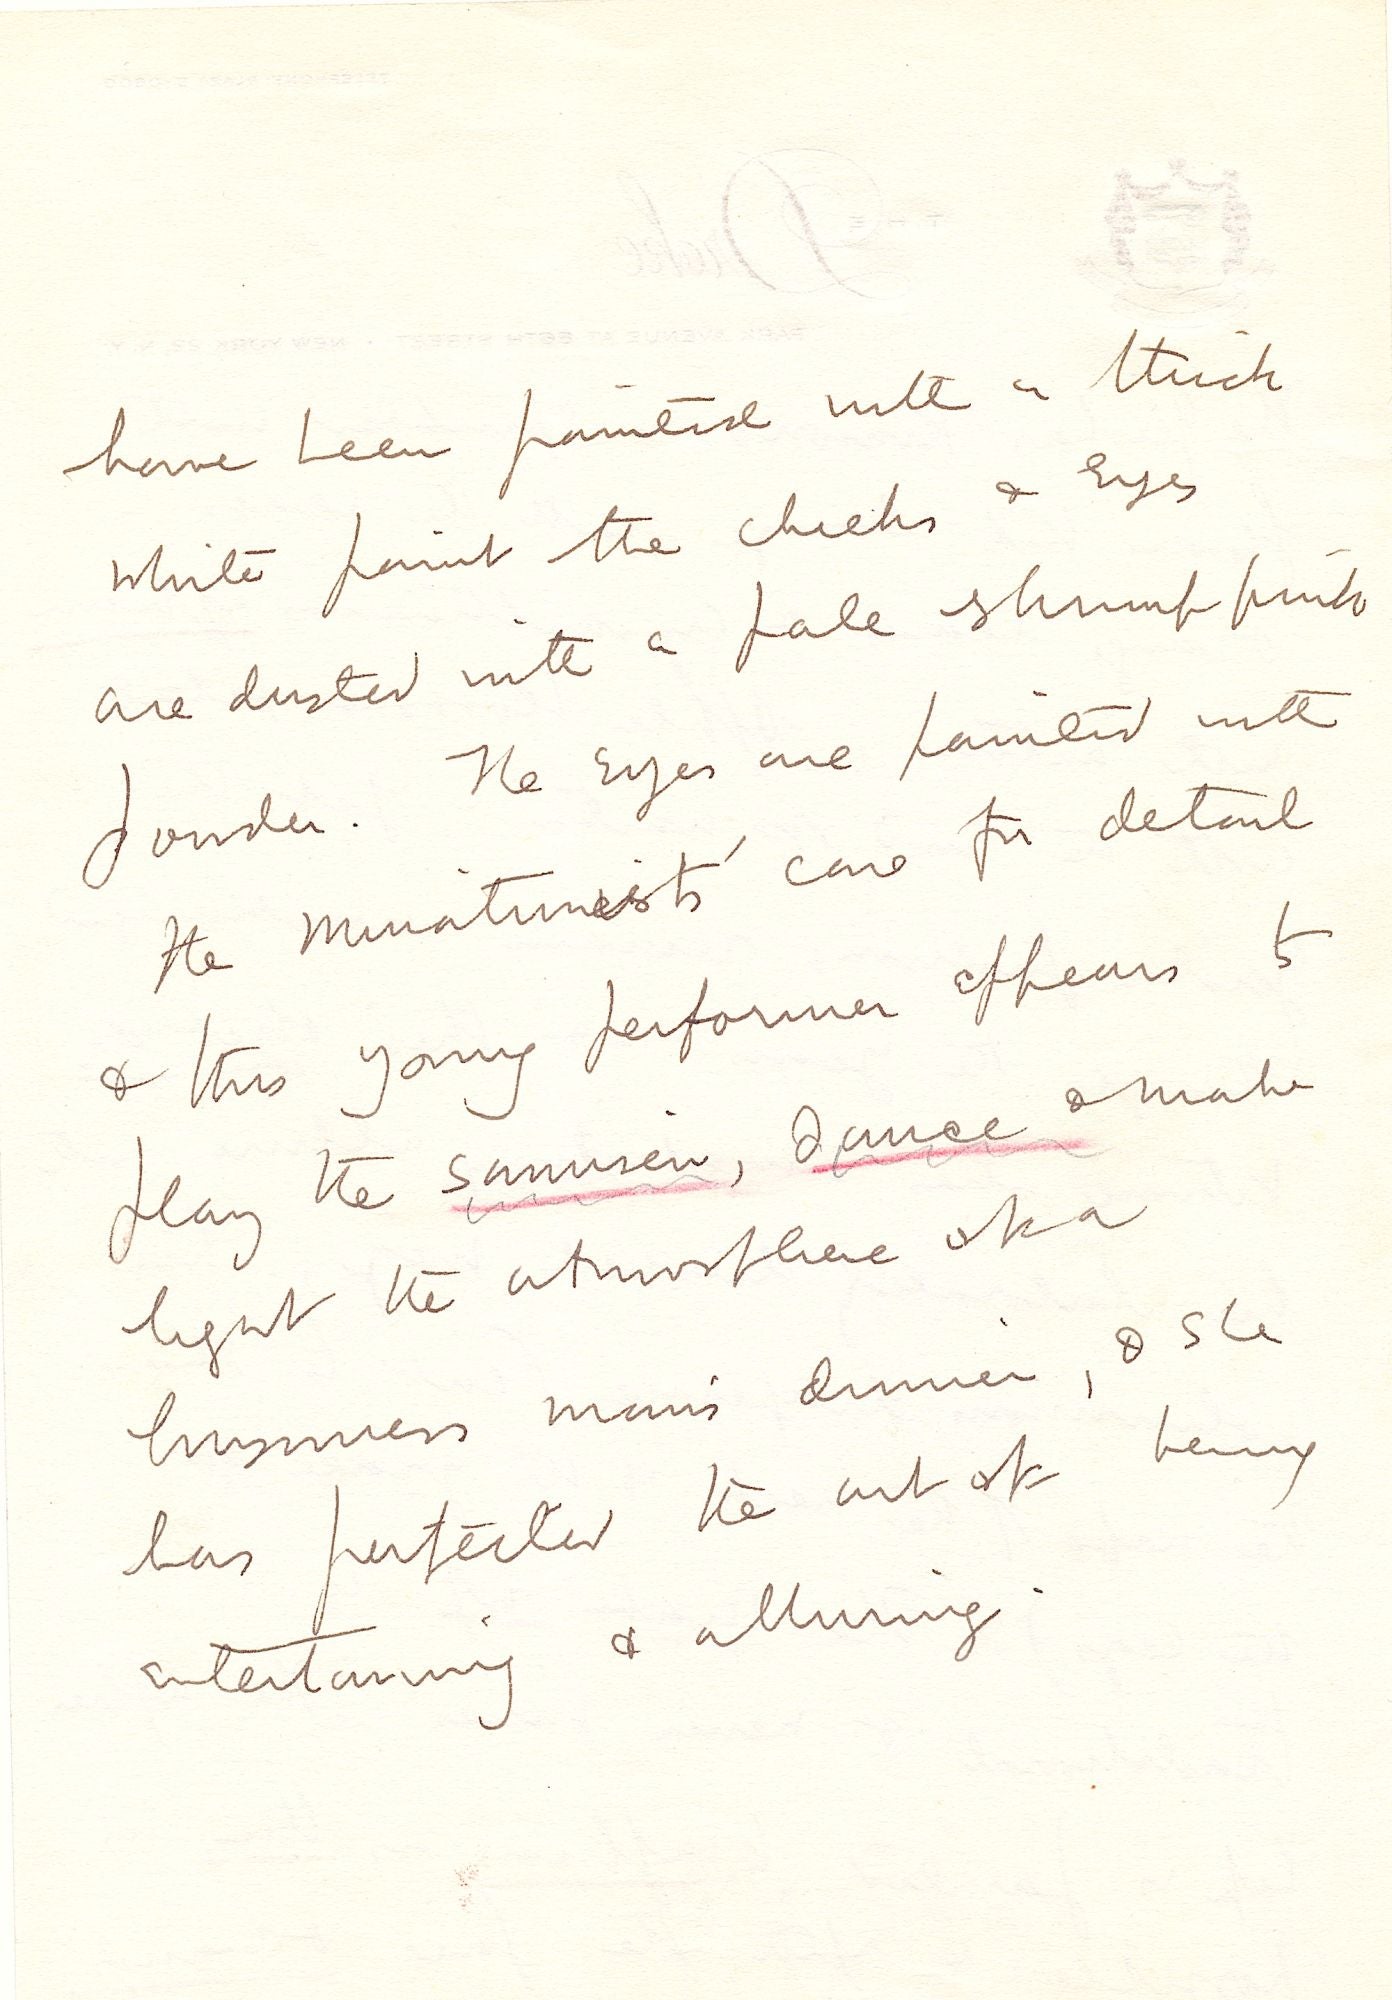 TELEPHONE PLAZA 5-0600
THE Drake
PARK AVENUE AT 56TH STREET · NEW YORK 22, N.Y.
have been painted with a thick
white paint the cheeks & eyes
are dusted with a pale shrimp pink
powder. The eyes are painted with
the miniaturists' care for detail
& this young performer appears to
play the samisen, dance & make
light the atmosphere of a
businness man's dinner, & she
has perfected the art of being
entertaining & alluring.